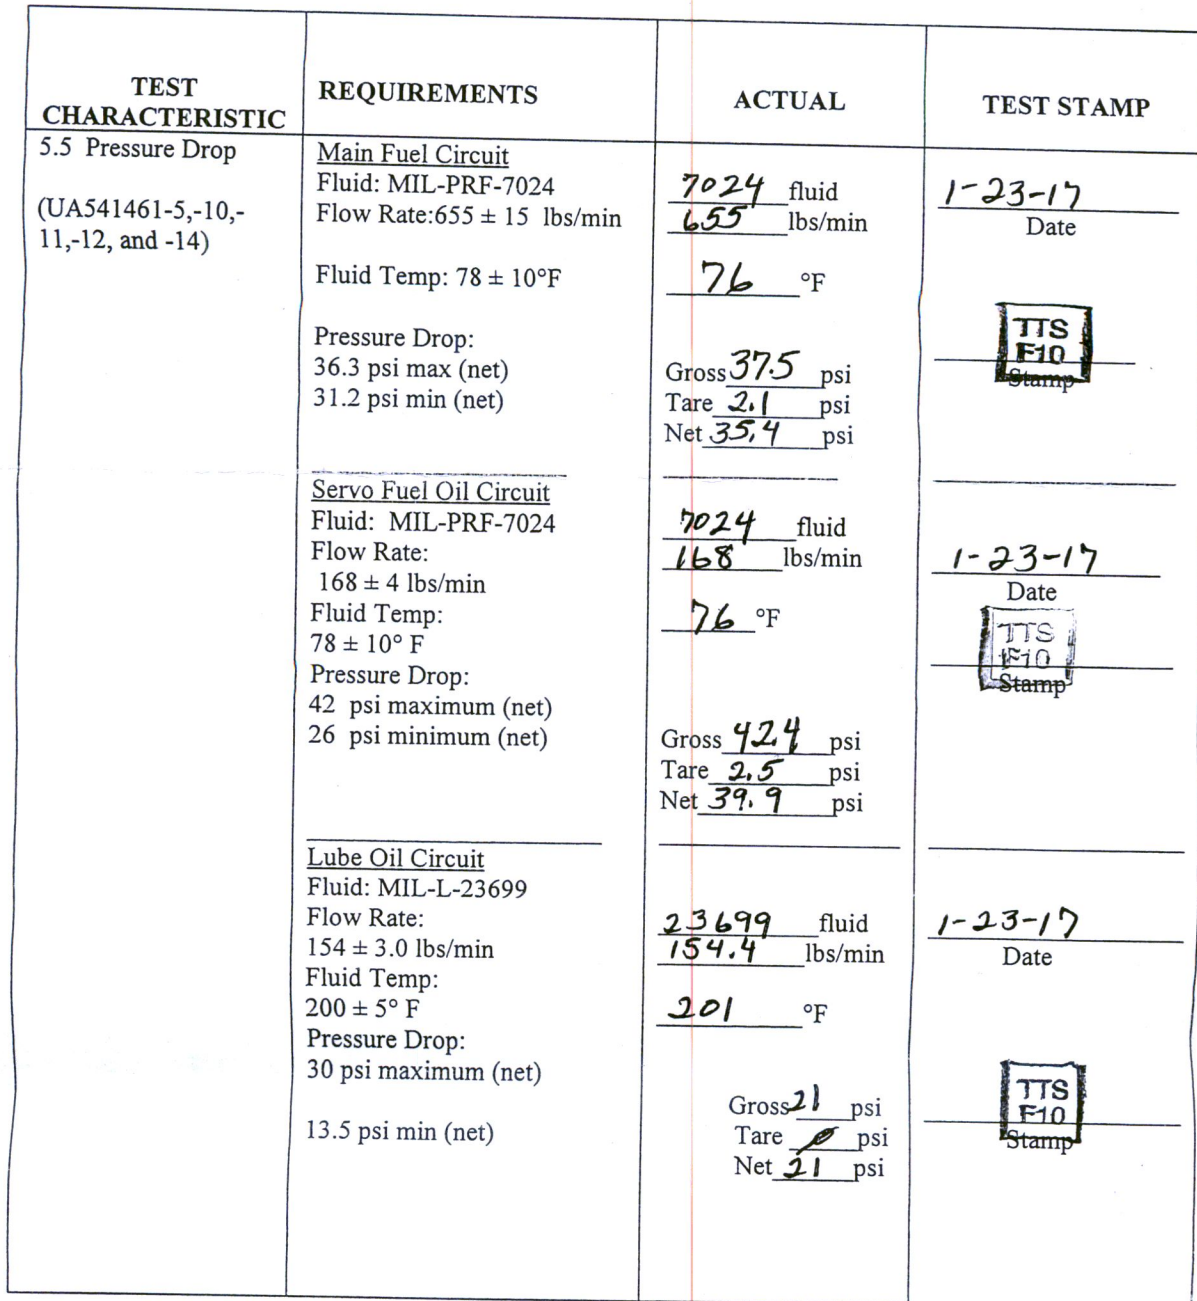 TEST CHARACTERISTIC
REQUIREMENTS
ACTUAL
TEST STAMP
5.5 Pressure Drop
(UA541461-5,-10,-
11,-12, and -14)
Main Fuel Circuit
Fluid: MIL-PRF-7024
Flow Rate:655 ± 15 lbs/min
Fluid Temp: 78 ± 10°F
Pressure Drop:
36.3 psi max (net)
31.2 psi min (net)
7024 fluid
655 lbs/min
76 °F
Gross 37.5 psi
Tare 2.1 psi
Net 35.4 psi
1-23-17
Date
TTS
F10
Stamp
Servo Fuel Oil Circuit
Fluid: MIL-PRF-7024
Flow Rate:
168 ± 4 lbs/min
Fluid Temp:
78 ± 10° F
Pressure Drop:
42 psi maximum (net)
26 psi minimum (net)
7024 fluid
168 lbs/min
76 °F
Gross 42.4 psi
Tare 2.5 psi
Net 39.9 psi
1-23-17
Date
TTS
F10
Stamp
Lube Oil Circuit
Fluid: MIL-L-23699
Flow Rate:
154 ± 3.0 lbs/min
Fluid Temp:
200 ± 5° F
Pressure Drop:
30 psi maximum (net)
13.5 psi min (net)
23699 fluid
154.4 lbs/min
201 °F
Gross 21 psi
Tare 0 psi
Net 21 psi
1-23-17
Date
TTS
F10
Stamp